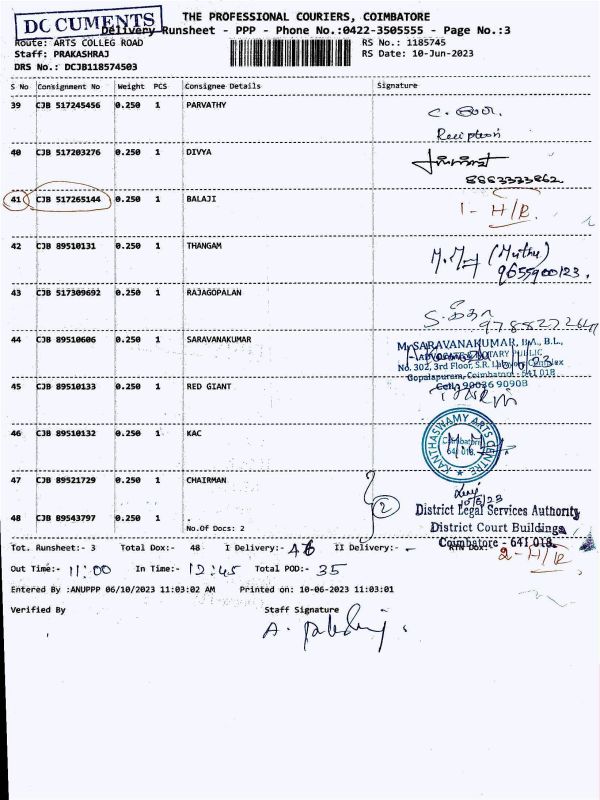 DOCUMENTS
THE PROFESSIONAL COURIERS, COIMBATORE
Delivery Runsheet - PPP - Phone No.:0422-3505555 - Page No.:3
Route: ARTS COLLEG ROAD RS No.: 1185745
Staff: PRAKASHRAJ RS Date: 10-Jun-2023
DRS No.: DCJB118574503
S No Consignment No Weight PCS Consignee Details Signature
39 CJB 517245456 0.250 1 PARVATHY
Reception
40 CJB 517203276 0.250 1 DIVYA
8883333862
41 CJB 517265144 0.250 1 BALAJI
1 - H/R.
42 CJB 89510131 0.250 1 THANGAM
(Muthu)
9655900123.
43 CJB 517309692 0.250 1 RAJAGOPALAN
44 CJB 89510606 0.250 1 SARAVANAKUMAR
M. SARAVANAKUMAR, B.A., B.L.,
ADVOCATE & NOTARY PUBLIC
No. 302, 3rd Floor, S.R. Complex
Gopalapuram, Coimbatore - 641 018.
Cell: 90036 90908
45 CJB 89510133 0.250 1 RED GIANT
46 CJB 89510132 0.250 1 KAC
KANTHASWAMY ARTS CENTRE
Coimbatore
641 018.
47 CJB 89521729 0.250 1 CHAIRMAN
2
10/6/23
48 CJB 89543797 0.250 1 .
No.Of Docs: 2
District Legal Services Authority
District Court Buildings
Coimbatore - 641 018.
Tot. Runsheet:- 3 Total Dox:- 48 I Delivery:- 46 II Delivery:- - RTN Dox:- 2 - H/R.
Out Time:- 11:00 In Time:- 12:45 Total POD:- 35
Entered By :ANUPPP 06/10/2023 11:03:02 AM Printed on: 10-06-2023 11:03:01
Verified By Staff Signature